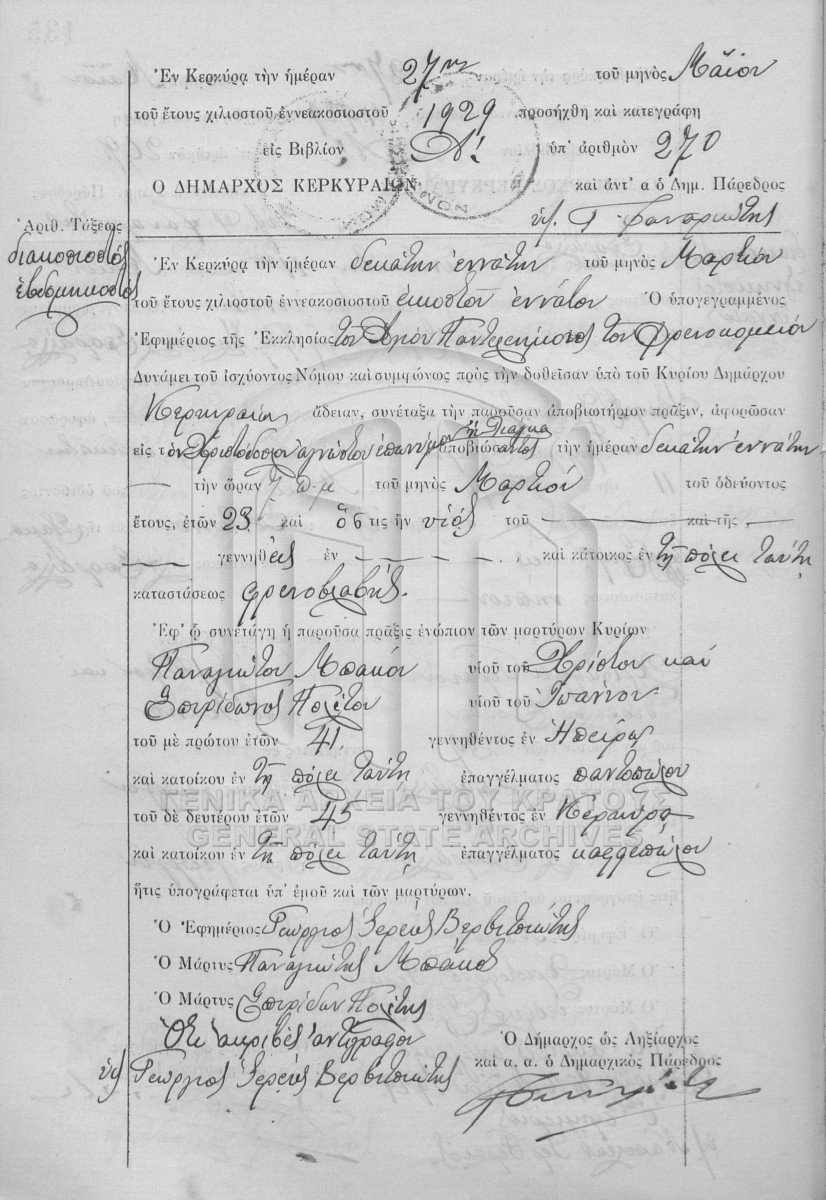 Ἐν Κερκύρᾳ τὴν ἡμέραν 27ην τοῦ μηνὸς Μαΐου
τοῦ ἔτους χιλιοστοῦ ἐννεακοσιοστοῦ 1929 προσήχθη καὶ κατεγράφη
εἰς Βιβλίον Δ! ὑπ' ἀριθμὸν 270
Ο ΔΗΜΑΡΧΟΣ ΚΕΡΚΥΡΑΙΩΝ καὶ ἀντ' α ὁ Δημ. Πάρεδρος
Γ. Φαναριώτης
Ἀριθ. Τάξεως
διακοσιοστὸς
ἑβδομηκοστὸς
Ἐν Κερκύρᾳ τὴν ἡμέραν δεκάτην ἐννάτην τοῦ μηνὸς Μαρτίου
τοῦ ἔτους χιλιοστοῦ ἐννεακοσιοστοῦ εἰκοστοῦ ἐννάτου Ὁ ὑπογεγραμμένος
Ἐφημέριος τῆς Ἐκκλησίας τοῦ Ἁγίου Παντελεήμονος τοῦ Φρενοκομείου
Δυνάμει τοῦ ἰσχύοντος Νόμου καὶ συμφώνως πρὸς τὴν δοθεῖσαν ὑπὸ τοῦ Κυρίου Δημάρχου
Κερκυραίων ἄδειαν, συνέταξα τὴν παροῦσαν ἀποβιωτήριον πρᾶξιν, ἀφορῶσαν
εἰς τὸν Χριστόδουλον ἀγνώστου ἐπωνύμου ἀποβιώσαντος τὴν ἡμέραν δεκάτην ἐννάτην
τὴν ὥραν 7 π.μ τοῦ μηνὸς Μαρτίου τοῦ ὁδεύοντος
ἔτους, ἐτῶν 23 καὶ ὅστις ἦν υἱὸς τοῦ — καὶ τῆς —
— γεννηθεὶς ἐν — καὶ κάτοικος ἐν τῇ πόλει ταύτῃ
καταστάσεως φρενοβλαβής.
Ἐφ' ᾧ συνετάγη ἡ παροῦσα πρᾶξις ἐνώπιον τῶν μαρτύρων Κυρίων
Παναγιώτου Μπάκου υἱοῦ τοῦ Χρίστου καὶ
Σπυρίδωνος Πολίτου υἱοῦ τοῦ Ἰωάννου
τοῦ μὲ πρώτου ἐτῶν 41. γεννηθέντος ἐν Ἠπείρῳ
καὶ κατοίκου ἐν τῇ πόλει ταύτῃ ἐπαγγέλματος παντοπώλου
ΓΕΝΙΚΑ ΑΡΧΕΙΑ ΤΟΥ ΚΡΑΤΟΥΣ
τοῦ δὲ δευτέρου ἐτῶν 45 γεννηθέντος ἐν Κέρκυρᾳ
GENERAL STATE ARCHIVES
καὶ κατοίκου ἐν τῇ πόλει ταύτῃ ἐπαγγέλματος καφφεπώλου
ἥτις ὑπογράφεται ὑπ' ἐμοῦ καὶ τῶν μαρτύρων.
Ὁ Ἐφημέριος Γεώργιος Ἱερεὺς Βερβιτσιώτης
Ὁ Μάρτυς Παναγιώτης Μπάκος
Ὁ Μάρτυς Σπυρίδων Πολίτης
Ὅτι ἀκριβὲς ἀντίγραφον
Γεώργιος Ἱερεὺς Βερβιτσιώτης
Ὁ Δήμαρχος ὡς Ληξίαρχος
καὶ α. α. ὁ Δημαρχικὸς Πάρεδρος